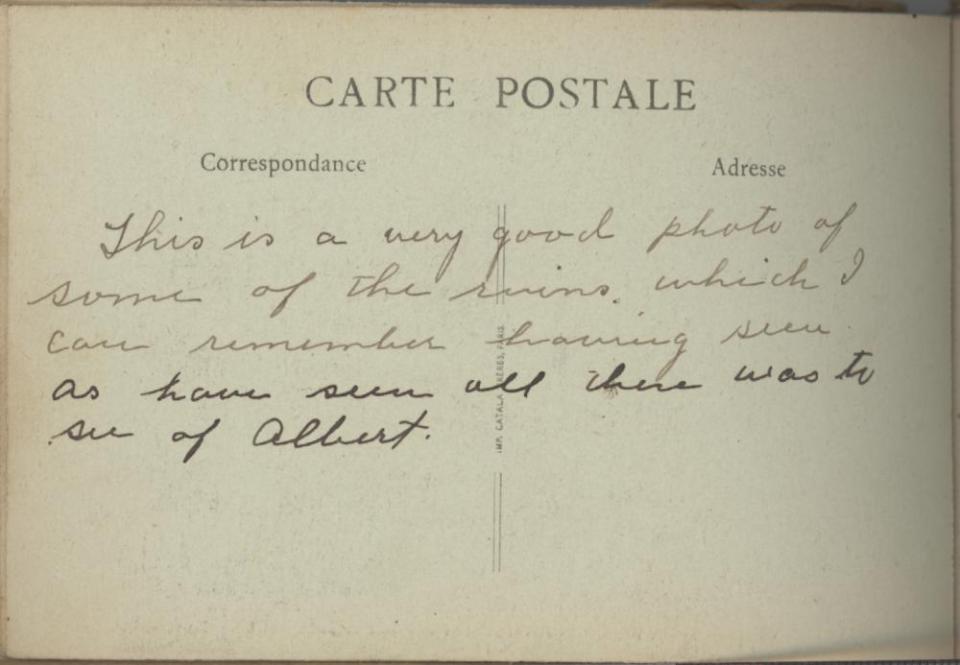 CARTE POSTALE
Correspondance
Adresse
This is a very good photo of
some of the ruins. which I
can remember having seen
as have seen all there was to
see of Albert.
IMP. CATALA FRERES, PARIS